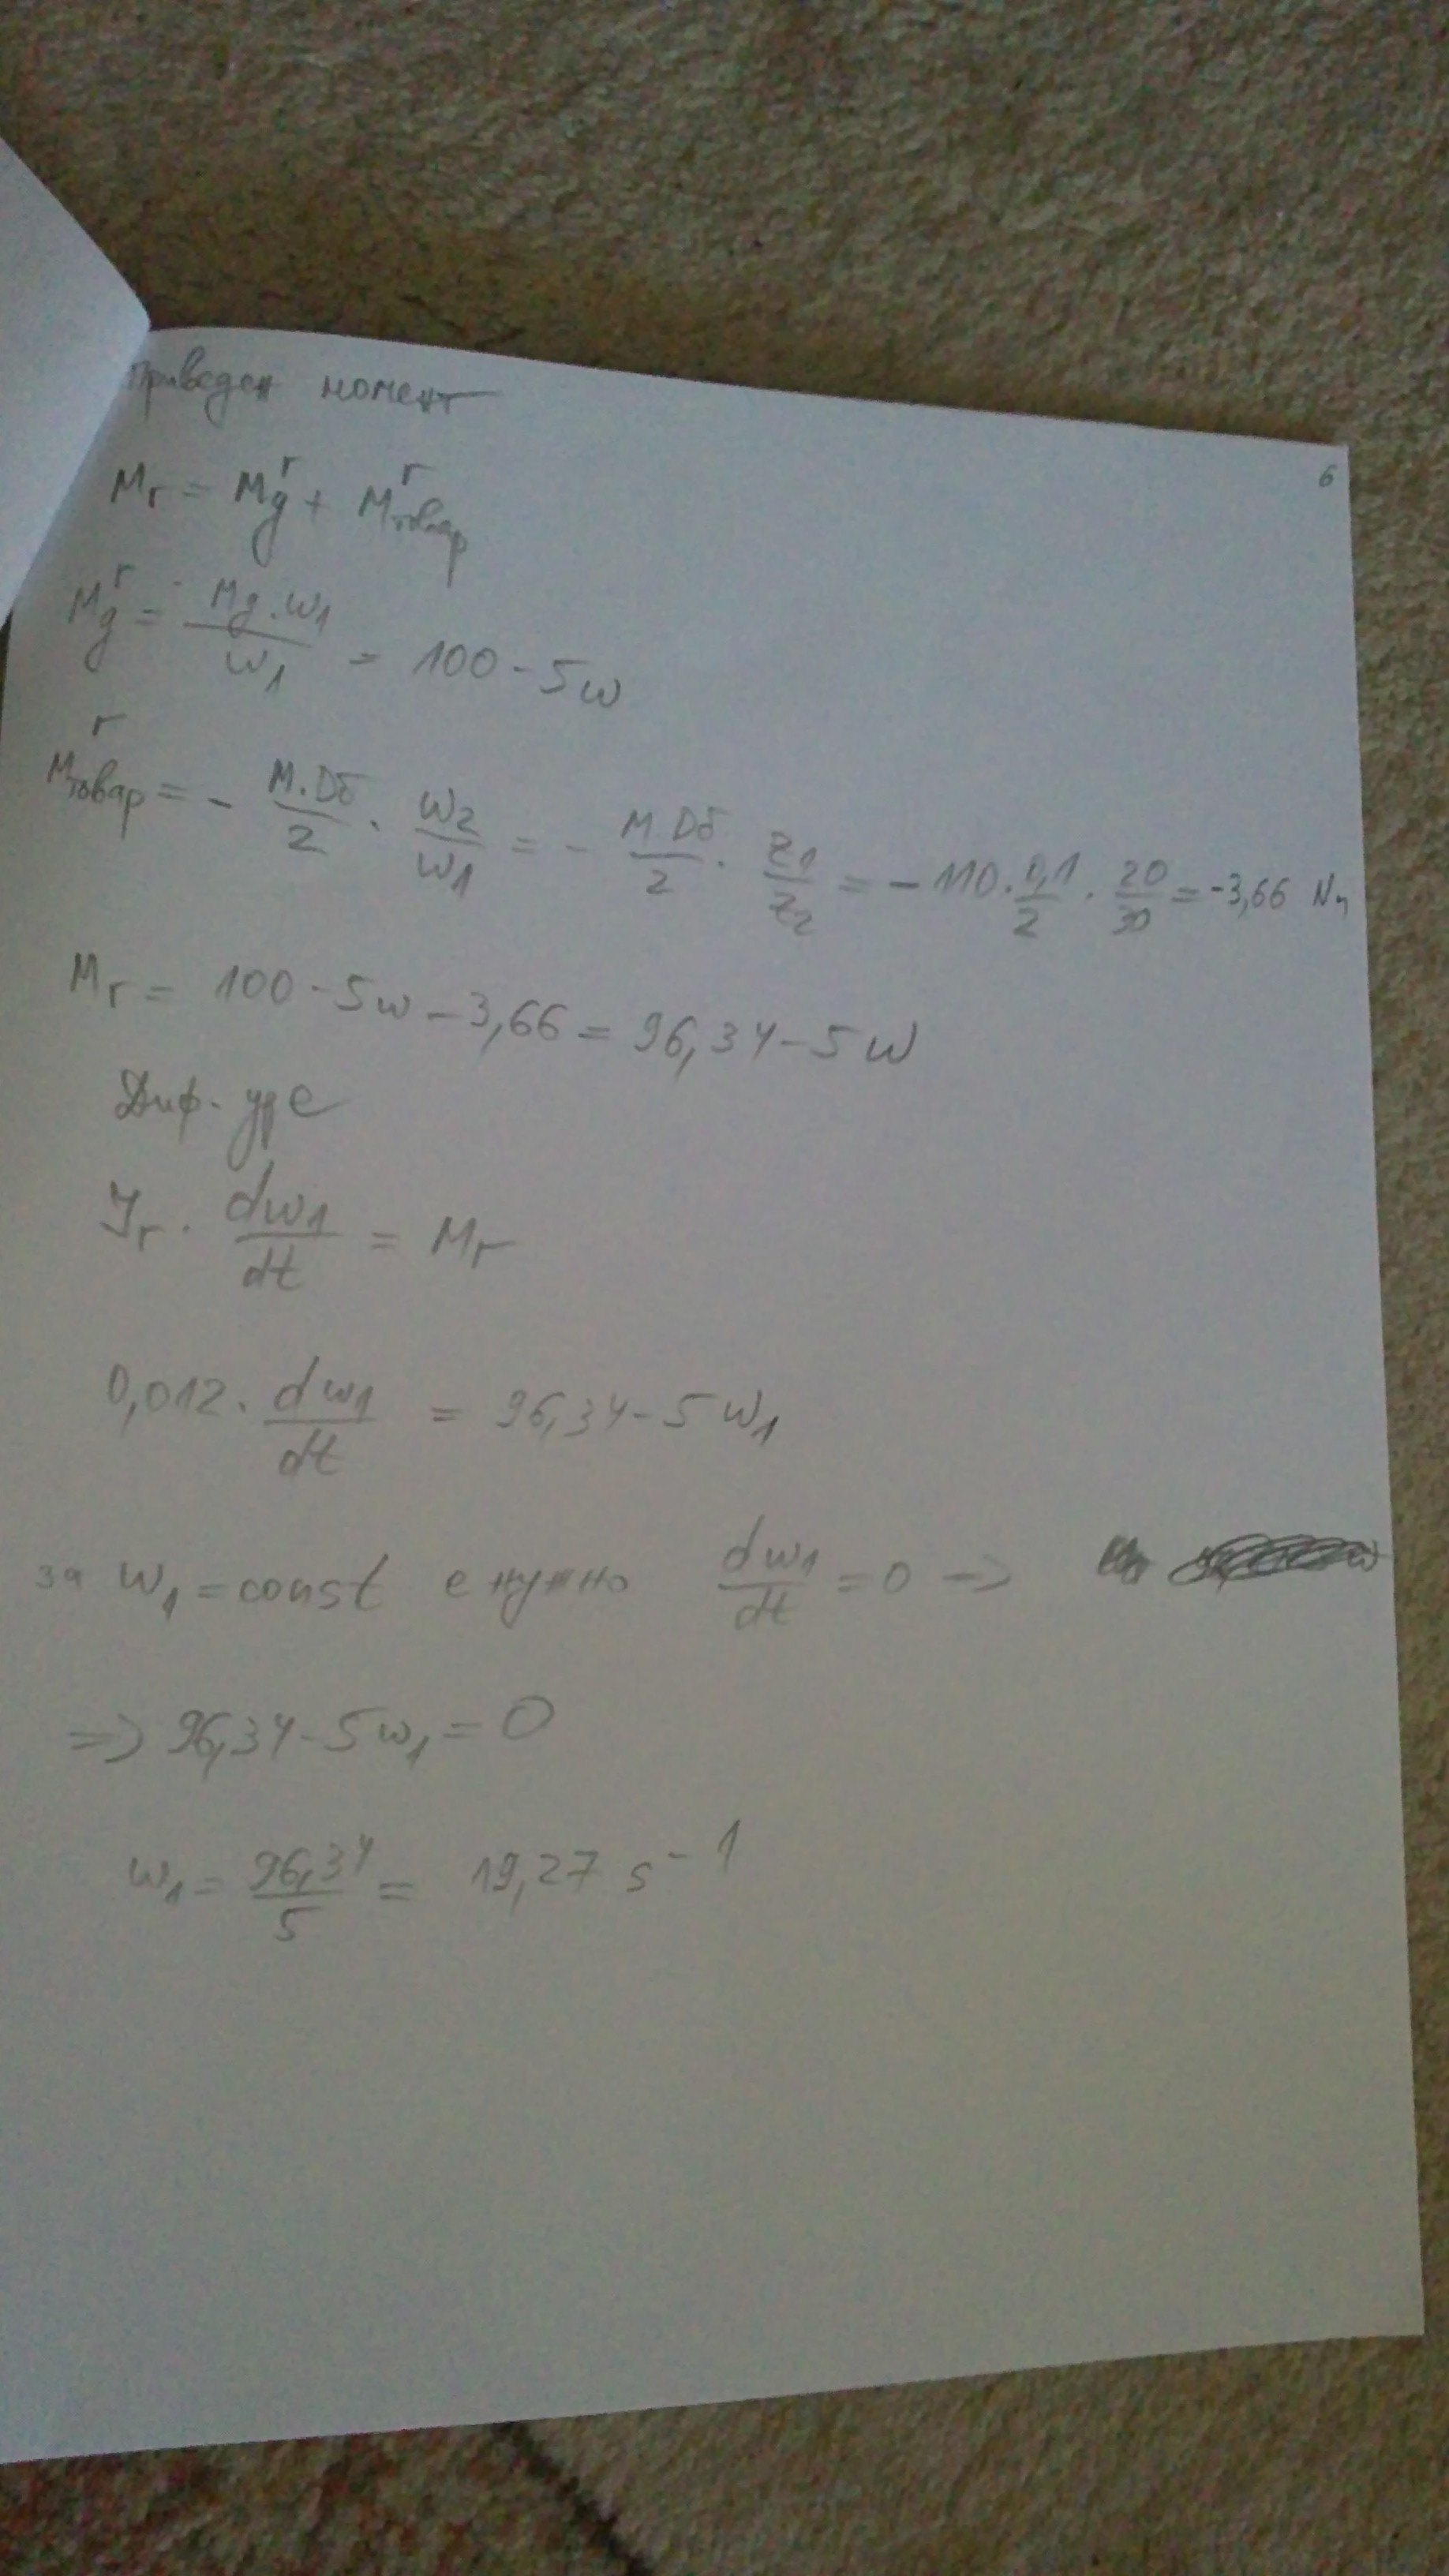 6
приведен момент
Mr = Mg^r + M товар^r
Mg^r = Mg.ω1/ω1 = 100 - 5ω
M товар^r = - M.Dб/2 . ω2/ω1 = - M.Dб/2 . z1/z2 = - 110 . 0,1/2 . 20/30 = -3,66 Nm
Mr = 100 - 5ω - 3,66 = 96,34 - 5ω
Диф. ур-е
Jr . dω1/dt = Mr
0,012 . dω1/dt = 96,34 - 5ω1
за ω1 = const е нужно dω1/dt = 0 ->
=> 96,34 - 5ω1 = 0
ω1 = 96,34/5 = 19,27 s^-1